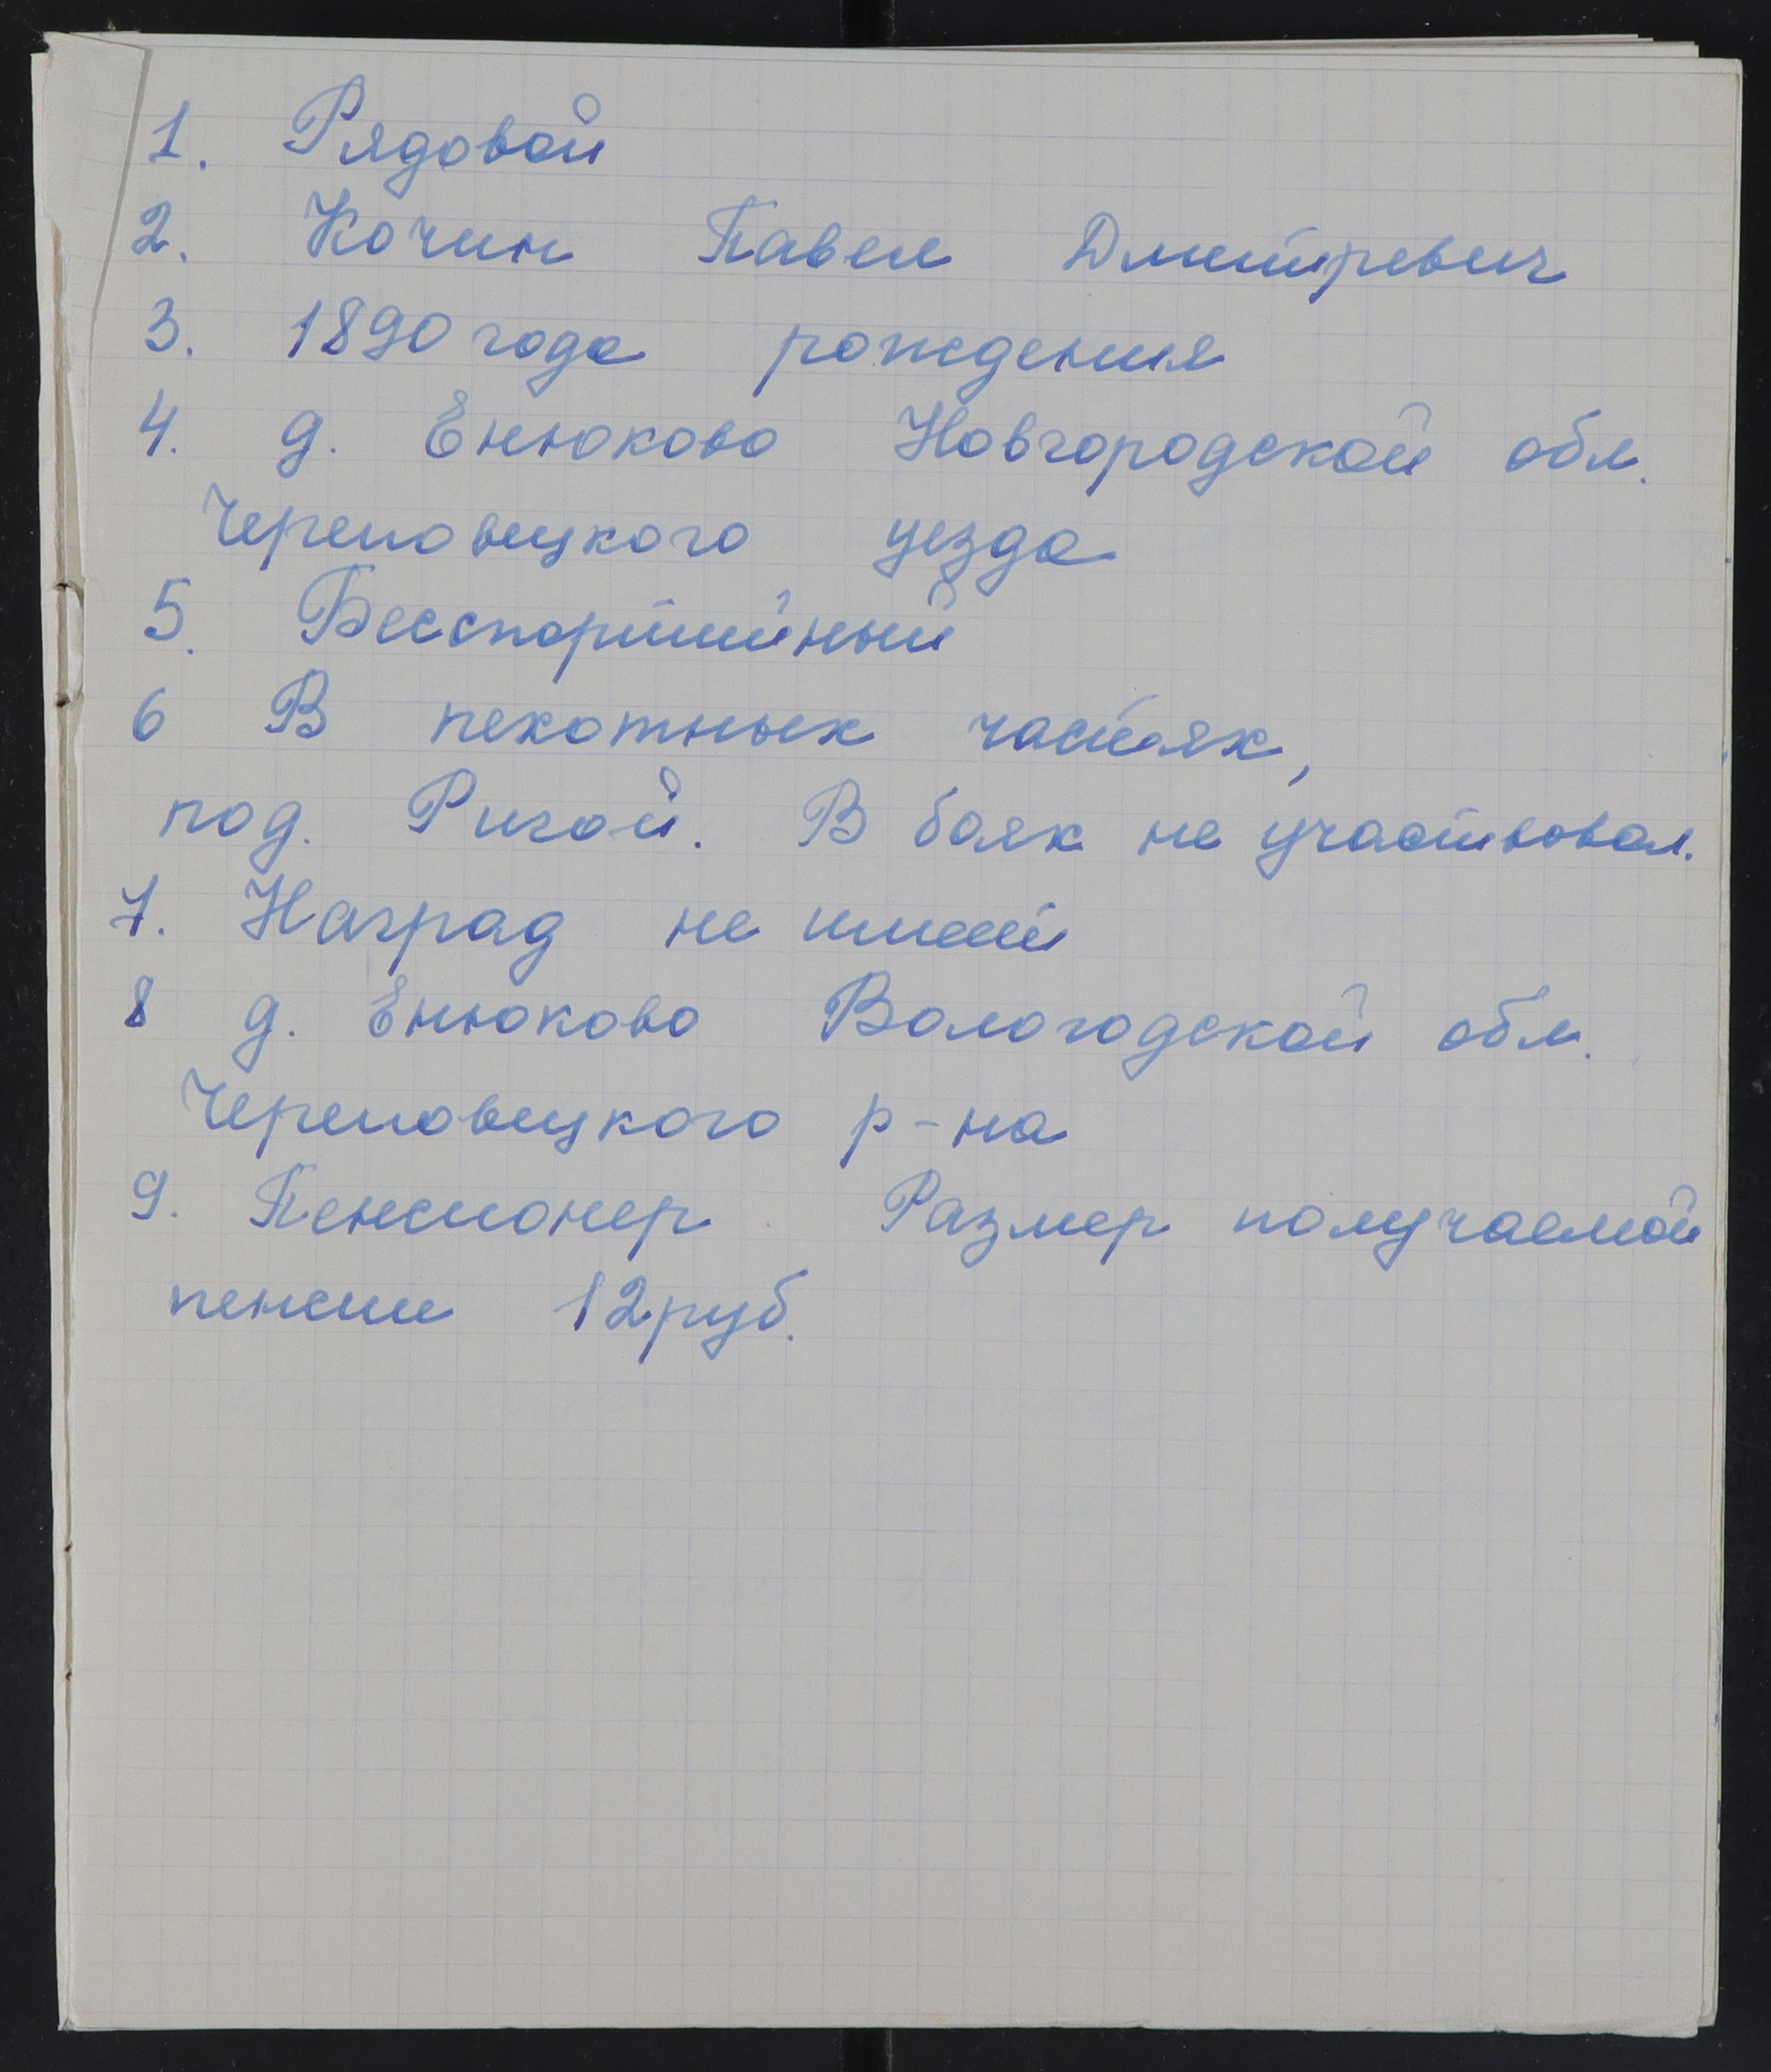 1. Рядовой
2. Кочин Павел Дмитревич
3. 1890 года рождения
4. д. Енюково Новгородской обл.
Череповецкого уезда
5. Беспортийный
6 В пехотных частях,
под. Ригой. В боях не участвовал.
7. Наград не имеет
8 д. Енюково Вологодской обл.
Череповецкого р-на
9. Пенсионер. Размер получаемой
пенсии 12 руб.